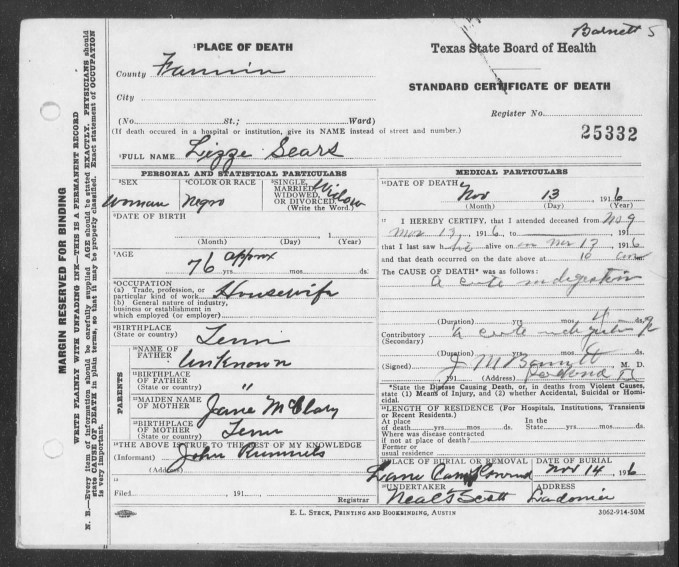 Barnett 5
PLACE OF DEATH
Texas State Board of Health
County Fannin
STANDARD CERTIFICATE OF DEATH
City
Register No.
(No. St.; Ward)
25332
(If death occured in a hospital or institution, give its NAME instead of street and number.)
FULL NAME Lizze Sears
PERSONAL AND STATISTICAL PARTICULARS
SEX woman
COLOR OR RACE Negro
SINGLE, MARRIED, WIDOWED, OR DIVORCED. (Write the Word.)
DATE OF BIRTH
(Month) (Day) 1 (Year)
AGE
76 approx yrs. mos. ds.
OCCUPATION
(a) Trade, profession, or
particular kind of work Housewife
(b) General nature of industry,
business or establishment in
which employed (or employer)
BIRTHPLACE
(State or country) Tenn
PARENTS
NAME OF FATHER Unknown
BIRTHPLACE OF FATHER (State or country) "
MAIDEN NAME OF MOTHER Jane McClary
BIRTHPLACE OF MOTHER (State or country) Tenn
THE ABOVE IS TRUE TO THE BEST OF MY KNOWLEDGE
(Informant) John Runnels
(Address)
Filed , 191
Registrar
MEDICAL PARTICULARS
DATE OF DEATH
Nov 13 1916
(Month) (Day) (Year)
I HEREBY CERTIFY, that I attended deceased from Nov 9
Nov 13, 1916, to 191
that I last saw h alive on Nov 13 1916
and that death occurred on the date above at 10 m
The CAUSE OF DEATH* was as follows:
Acute indigestion
(Duration) yrs mos. 4 ds.
Contributory Acute indigestion
(Secondary)
(Duration) yrs mos. ds.
(Signed) J M Barnett M. D.
191 (Address)
*State the Disease Causing Death, or, in deaths from Violent Causes,
state (1) Means of Injury, and (2) whether Accidental, Suicidal or Homi-
cidal.
LENGTH OF RESIDENCE (For Hospitals, Institutions, Transients
or Recent Residents.)
At place of death yrs. mos. ds. In the State yrs. mos. ds.
Where was disease contracted
if not at place of death?
Former or
usual residence
PLACE OF BURIAL OR REMOVAL
DATE OF BURIAL
Lane Nov 14 1916
UNDERTAKER
Neal & Scott
ADDRESS
Ladonia
E. L. STECK, PRINTING AND BOOKBINDING, AUSTIN
3062-914-50M
MARGIN RESERVED FOR BINDING
WRITE PLAINLY WITH UNFADING INK—THIS IS A PERMANENT RECORD
N. B.—Every item of information should be carefully supplied AGE should be stated EXACTLY. PHYSICIANS should
state CAUSE OF DEATH in plain terms so that it may be properly classified. Exact statement of OCCUPATION
is very important.